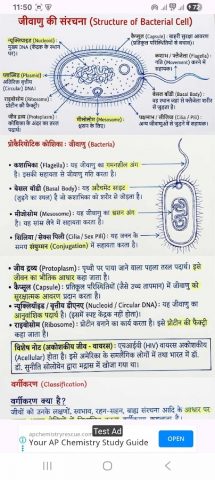 11:50
72
जीवाणु की संरचना (Structure of Bacterial Cell)
न्यूक्लियॉइड (Nucleoid)
मुख्य DNA (केंद्रक के स्थान पर)
कैप्सूल (Capsule) - बाहरी सुरक्षा आवरण
(प्रतिकूल परिस्थितियों से बचाव)
प्लाज्मिड (Plasmid)
अतिरिक्त वृत्तीय
(Circular DNA)
राइबोसोम (Ribosome)
प्रोटीन की फैक्ट्री
जीव द्रव्य (Protoplasm)
मीसोसोम (Mesosome)
श्वसन के लिए।
कशाभ / फ्लैजेला (Flagella)
गति (Movement) करने में
सहायक।
बेसल बॉडी (Basal Body)
प्रोकैरियोटिक कोशिका : जीवाणु (Bacteria)
• कशाभिका (Flagella): यह जीवाणु का गमनशील अंग है। इसकी सहायता से जीवाणु गति करता है।
• बेसल बॉडी (Basal Body): यह अटैचमेंट साइट (जुड़ने का स्थान) है जो कशाभिका को शरीर से जोड़ता है।
• मीसोसोम (Mesosome): यह जीवाणु का श्वसन अंग है। यह सांस लेने में सहायता करता है।
• सिलिया/सेक्स पिली (Cilia / Sex Pili): यह जनन के समय संयुग्मन (Conjugation) में सहायता करता है।
• जीव द्रव्य (Protoplasm): पृथ्वी पर पाया जाने वाला पहला तरल पदार्थ। इसे जीवन का भौतिक आधार कहा जाता है।
• कैप्सूल (Capsule): प्रतिकूल परिस्थितियों (जैसे उच्च तापमान) में जीवाणु को सुरक्षात्मक आवरण प्रदान करता है।
• न्यूक्लियॉइड / वृत्तीय डीएनए (Nucleoid / Circular DNA): यह जीवाणु का आनुवंशिक पदार्थ है। (इसमें स्पष्ट केंद्रक नहीं होता)।
• राइबोसोम (Ribosome): प्रोटीन बनाने का कार्य करता है। इसे प्रोटीन की फैक्ट्री कहा जाता है।
विशेष नोट (अकोशकीय जीव - वायरस): एचआईवी (HIV) वायरस अकोशकीय (Acellular) होता है। इसे अमेरिका के समलैंगिक लोगों में तथा भारत में डॉ. सुनीति सोलोमोन द्वारा मद्रास में खोजा गया था।
वर्गीकरण (Classification)
वर्गीकरण क्या है?
जीवों को उनके लक्षणों, स्वभाव, रहन-सहन, बाह्य संरचना आदि के आधार पर
Test Ad
apchemistryrescue.com
Your AP Chemistry Study Guide
OPEN